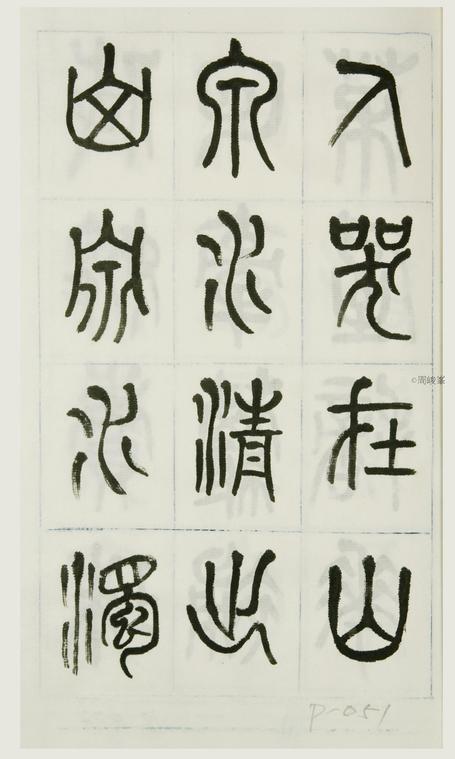 人哭在山
泉水清出
山泉水濁
©周峻峯
P-051